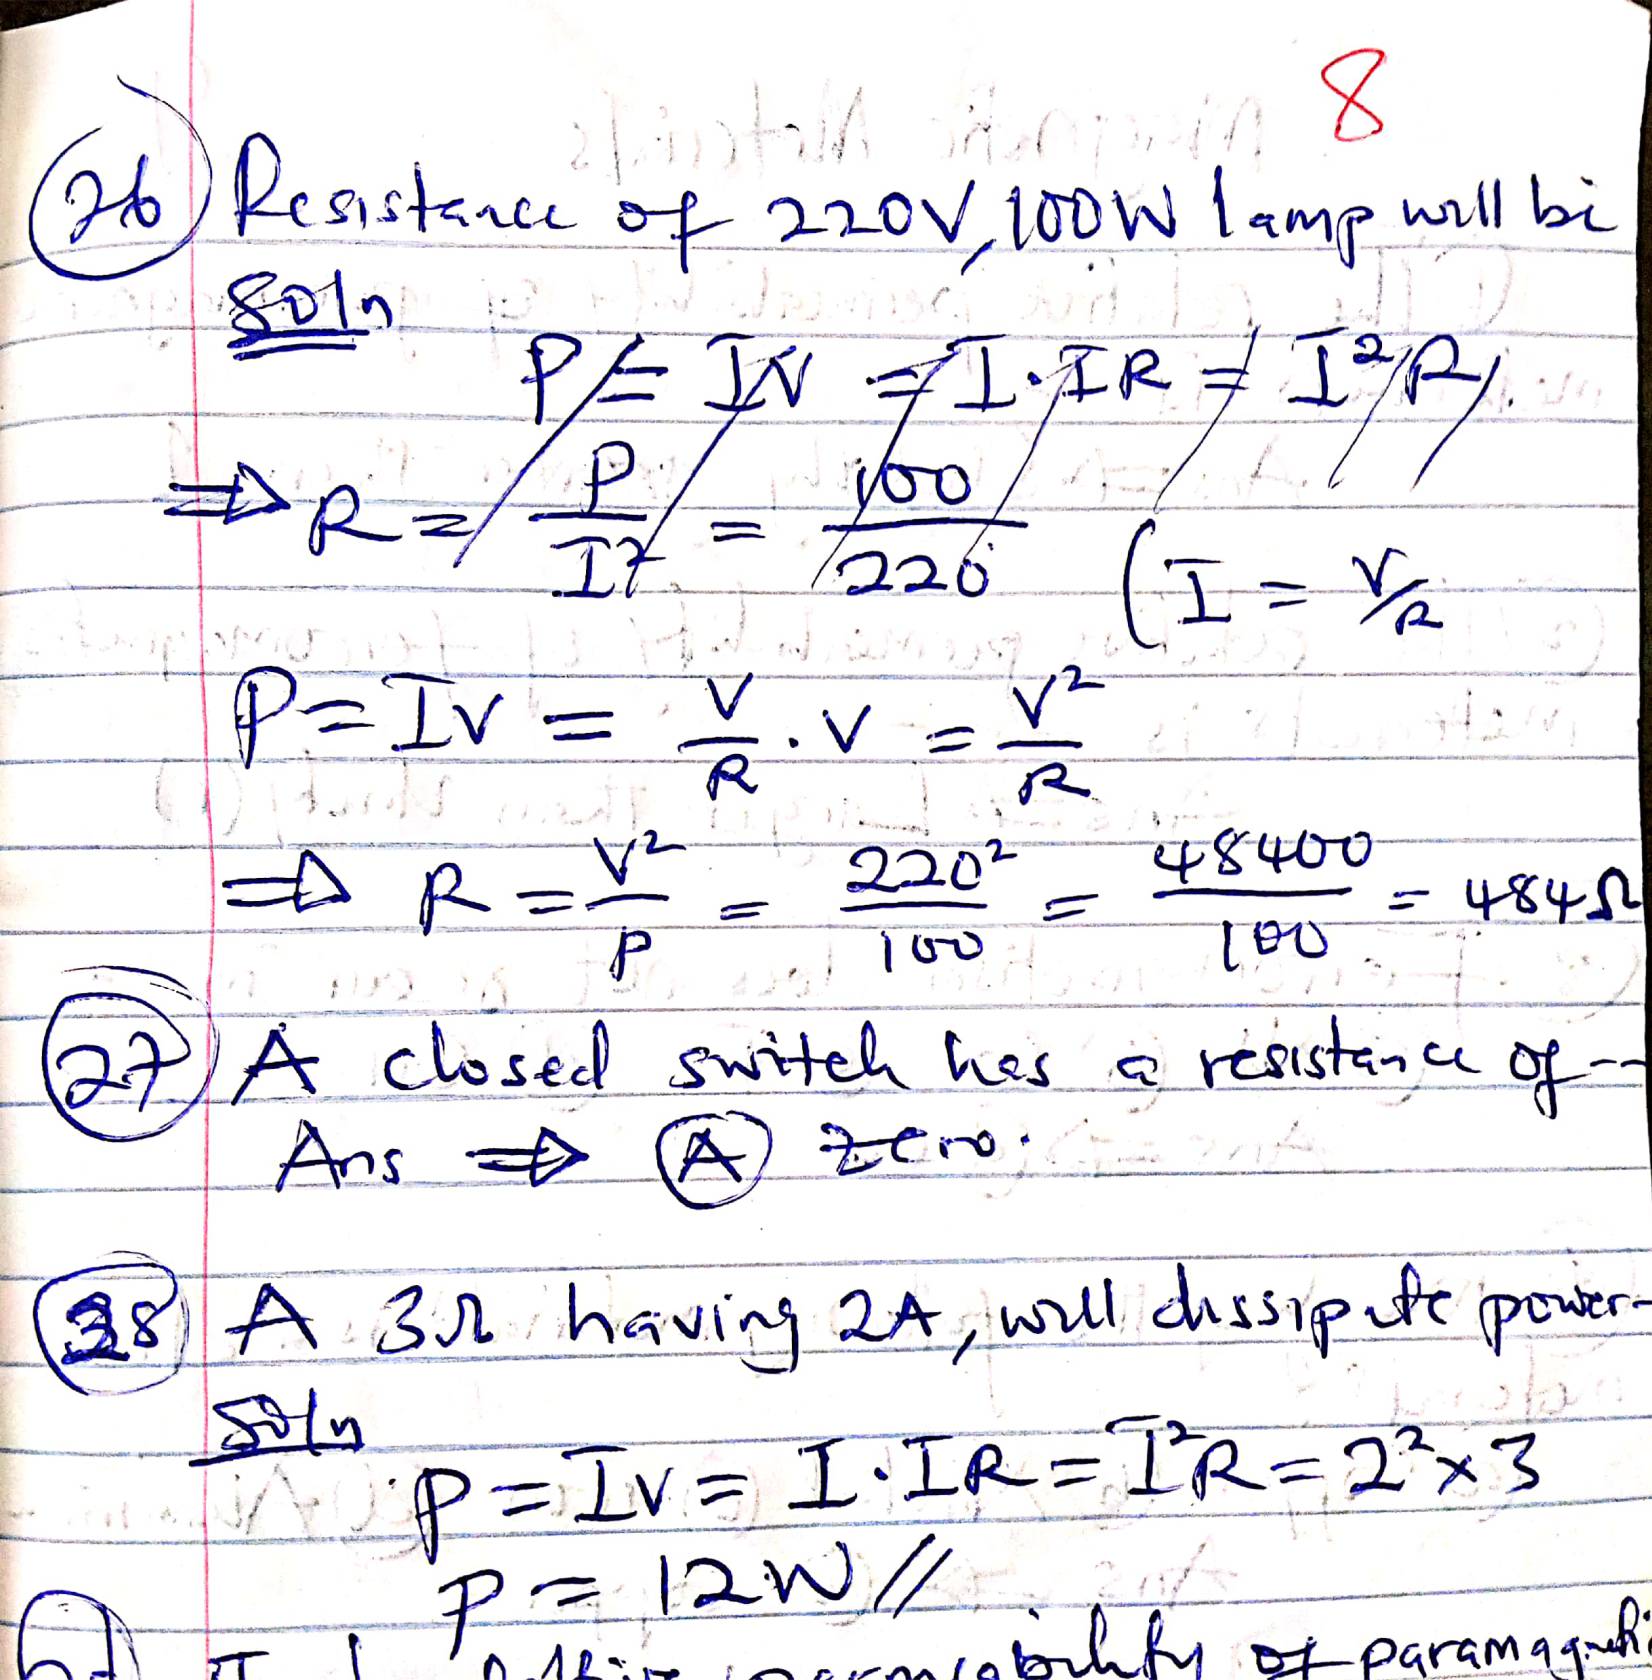 8
26 Resistance of 220V, 100W lamp will be
Soln
P = IV = I·IR = I²R.
⇒ R = P/I² = 100/220 (I = V/R
P = IV = V/R · V = V²/R
⇒ R = V²/P = 220²/100 = 48400/100 = 484Ω
27 A closed switch has a resistance of --
Ans ⇒ A zero.
28 A 3Ω having 2A, will dissipate power-
Soln
P = IV = I·IR = I²R = 2² × 3
P = 12W //
permeability of paramagneti